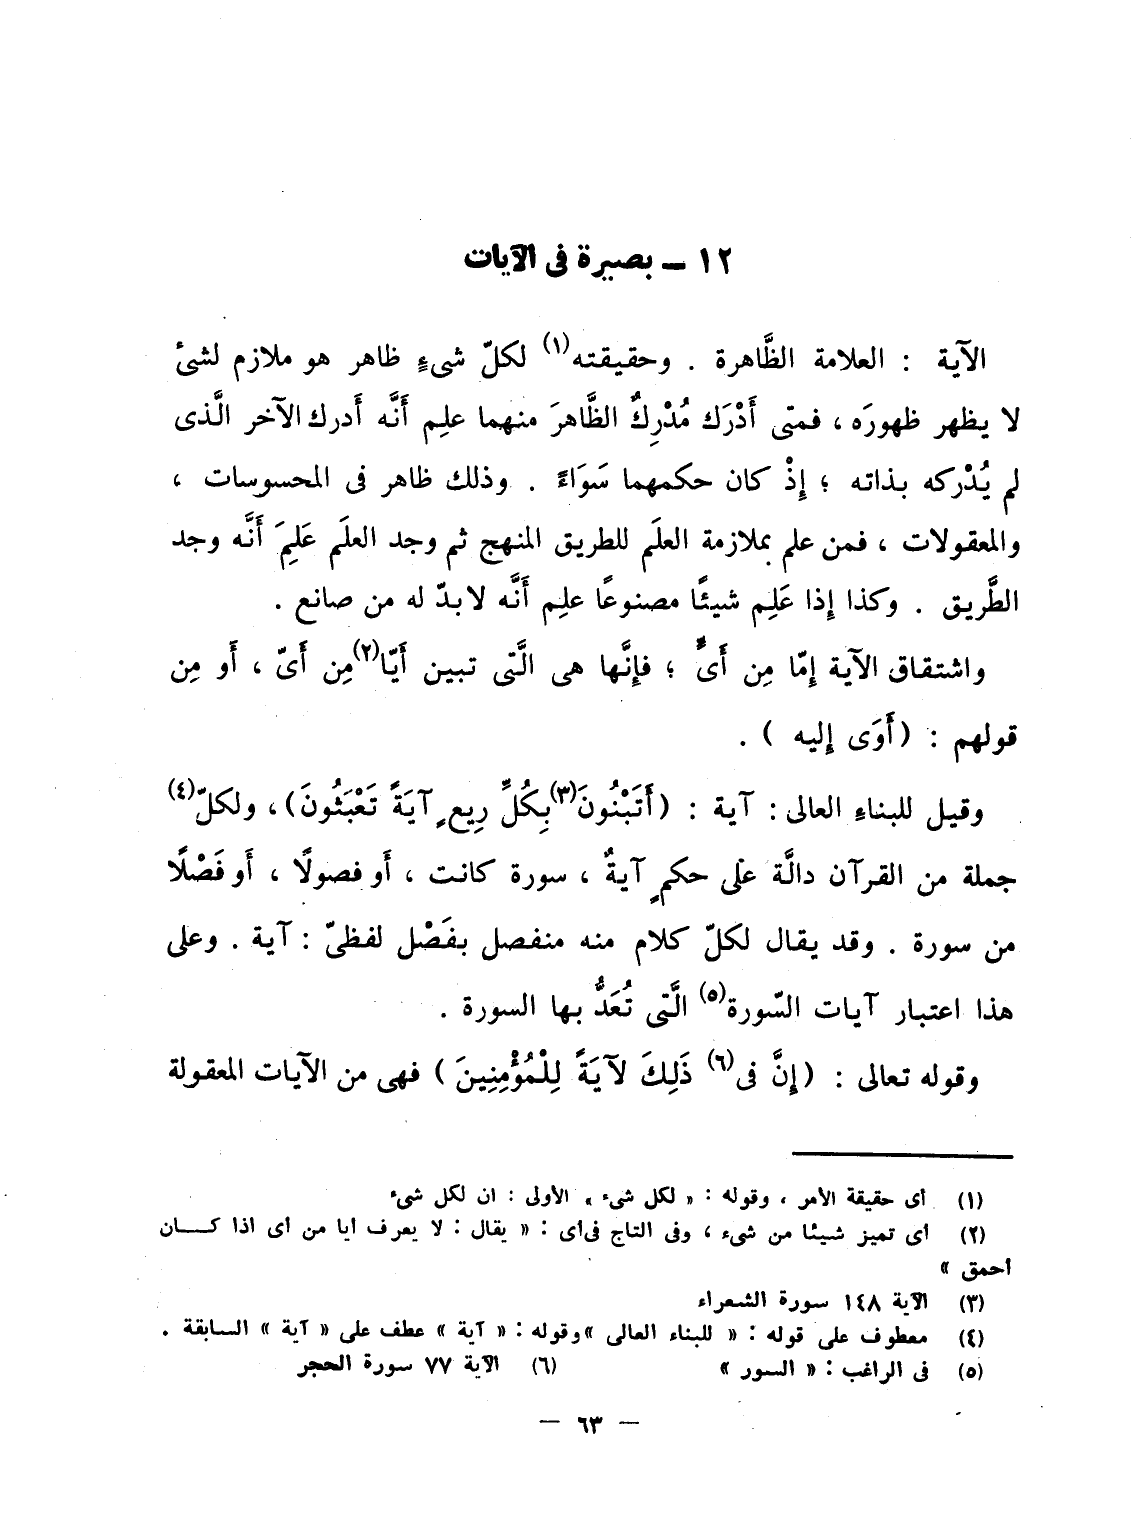 ١٢ – بصيرة فى الآيات
الآية : العلامة الظَّاهرة . وحقيقته(١) لكلّ شىءٍ ظاهر هو ملازم لشىْ
لا يظهر ظهورَه ، فمتى أَدْرَك مُدْرِكٌ الظَّاهرَ منهما علِم أَنَّه أَدرك الآخر الَّذى
لم يُدْركه بذاته ؛ إِذْ كان حكمهما سَوَاءً . وذلك ظاهر فى المحسوسات ،
والمعقولات ، فمن علم بملازمة العلَم للطريق المنهج ثم وجد العلَم عَلِمَ أَنَّه وجد
الطَّريق . وكذا إِذا عَلِم شيئًا مصنوعًا علِم أَنَّه لابدّ له من صانع .
واشتقاق الآية إِمّا مِن أَىٍّ ؛ فإِنَّها هى الَّتى تبين أَيًّا(٢) مِن أَىّ ، أَو مِن
قولهم : (أَوَى إِليه ) .
وقيل للبناءِ العالى : آية : (أَتَبْنُونَ(٣) بِكُلِّ رِيعٍ آيَةً تَعْبَثُونَ)، ولكلّ(٤)
جملة من القرآن دالَّة على حكمٍ آيةٌ ، سورة كانت ، أَو فصولًا ، أَو فَصْلًا
من سورة . وقد يقال لكلّ كلام منه منفصل بفَصْل لفظىّ : آية . وعلى
هذا اعتبار آيات السّورة(٥) الَّتى تُعَدُّ بها السورة .
وقوله تعالى : (إِنَّ فى(٦) ذَلِكَ لآيَةً لِلْمُؤْمِنِينَ ) فهى من الآيات المعقولة
(١) أى حقيقة الأمر ، وقوله : « لكل شىء » الأولى : ان لكل شىء
(٢) أى تميز شيئا من شىء ، وفى التاج فى أى : « يقال : لا يعرف ايا من أى اذا كــان
أحمق »
(٣) الآية ١٤٨ سورة الشعراء
(٤) معطوف على قوله : « للبناء العالى » وقوله : « آية » عطف على « آية » السابقة .
(٥) فى الراغب : « السور » (٦) الآية ٧٧ سورة الحجر
– ٦٣ –